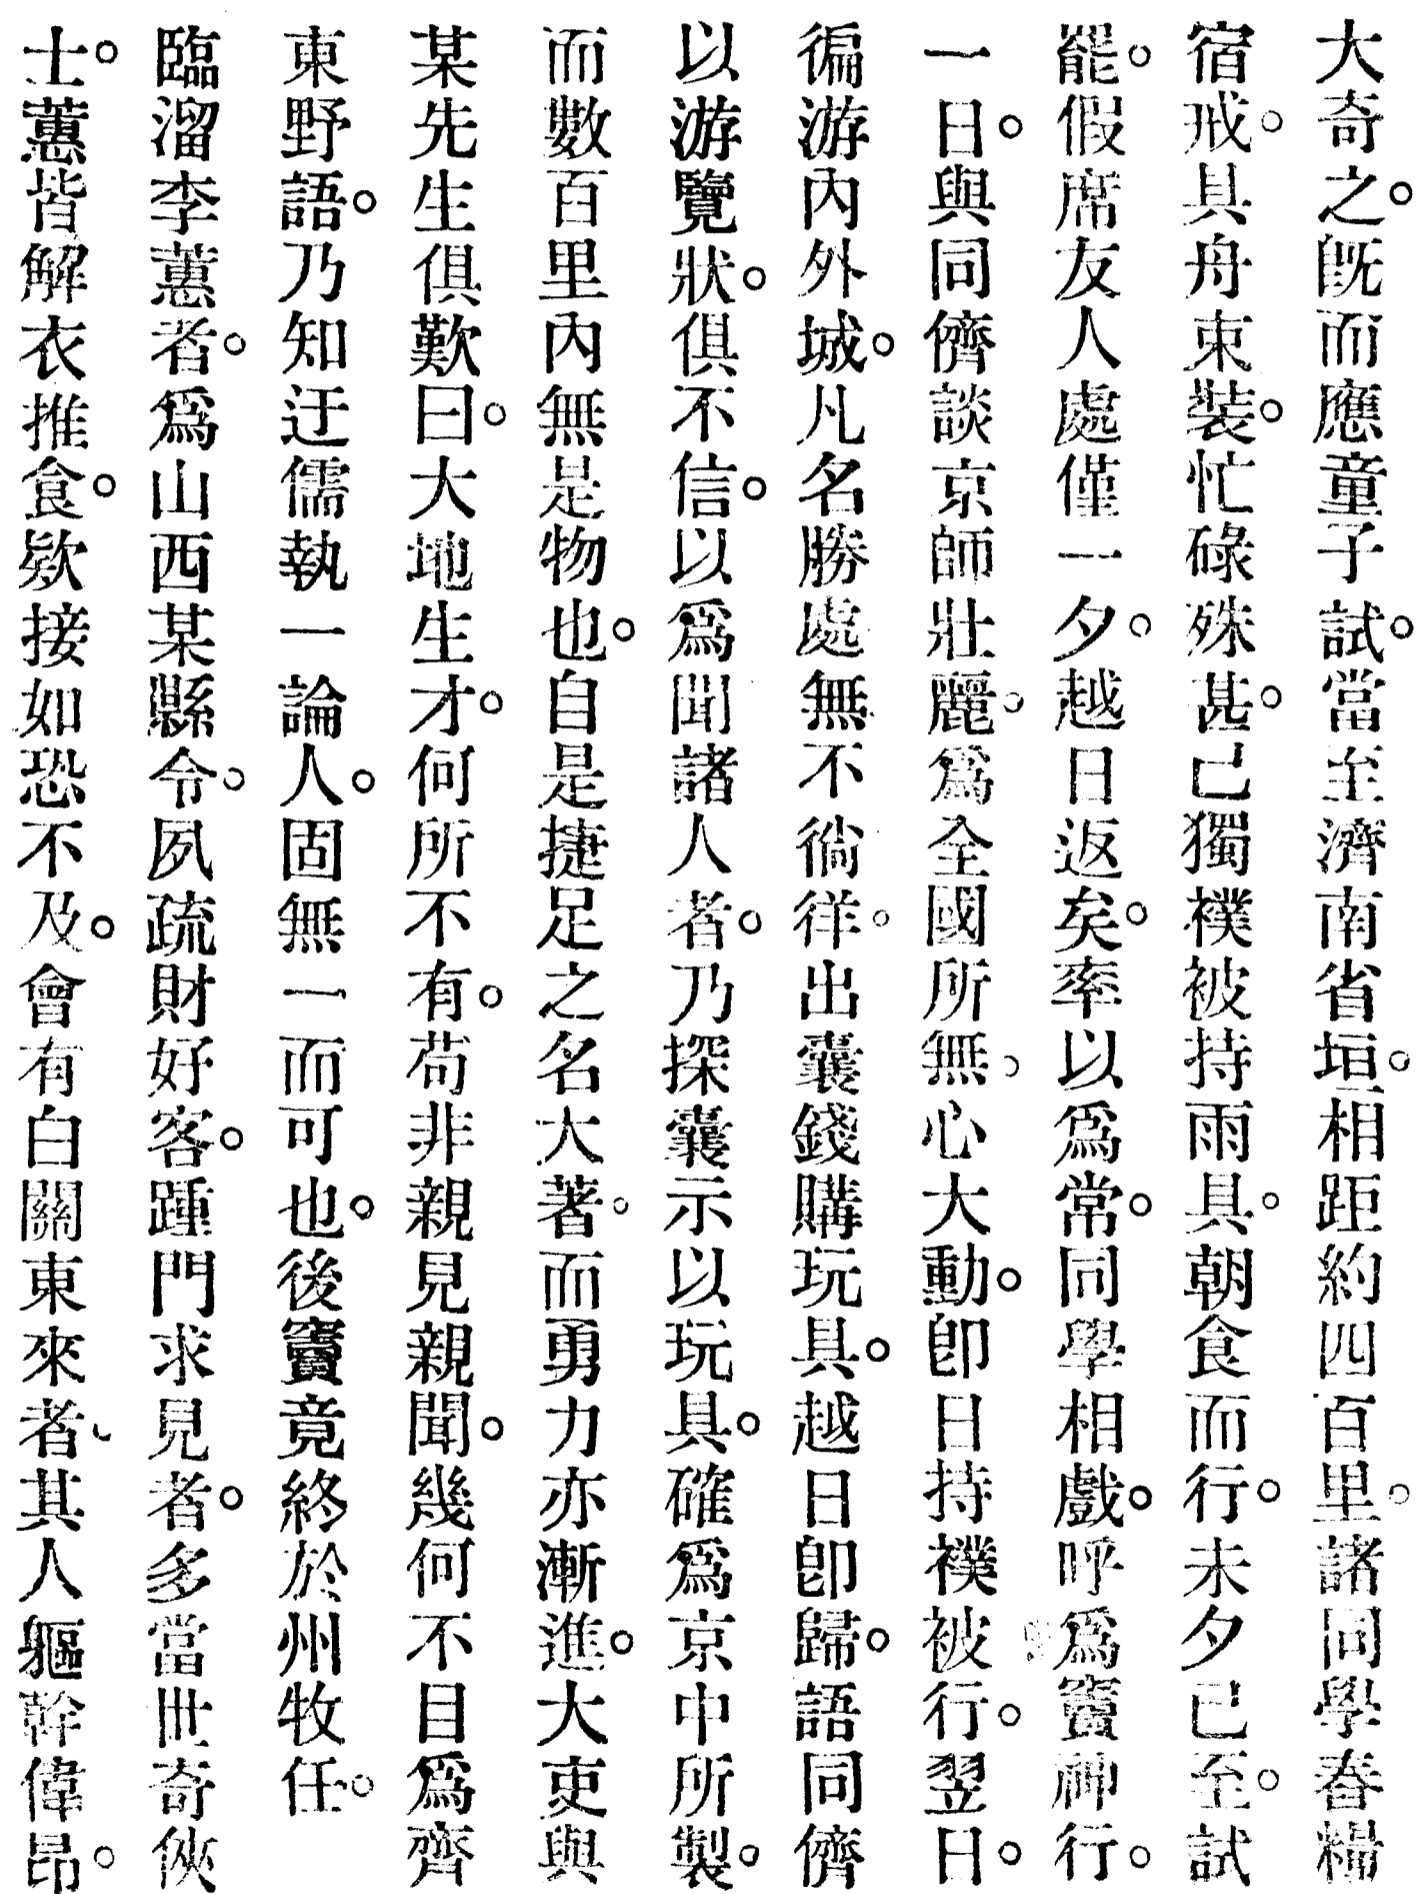 大奇之。旣而應童子試。當至濟南省垣。相距約四百里。諸同學舂糧
宿戒。具舟束裝。忙碌殊甚。己獨襆被持雨具。朝食而行。未夕已至。試
罷。假席友人處僅一夕。越日返矣。率以爲常。同學相戲。呼爲竇神行。
一日。與同儕談京師壯麗。爲全國所無。心大動。卽日持襆被行。翌日。
徧游內外城。凡名勝處無不徜徉。出囊錢購玩具。越日卽歸。語同儕
以游覽狀。俱不信。以爲聞諸人者。乃探囊示以玩具。確爲京中所製。
而數百里內無是物也。自是捷足之名大著。而勇力亦漸進。大吏與
某先生俱歎曰。大地生才。何所不有。苟非親見親聞。幾何不目爲齊
東野語。乃知迂儒執一論人。固無一而可也。後竇竟終於州牧任。
臨溜李蕙者。爲山西某縣令。夙疏財好客。踵門求見者。多當世奇俠
士。蕙皆解衣推食。欵接如恐不及。會有自關東來者、其人軀幹偉昂。